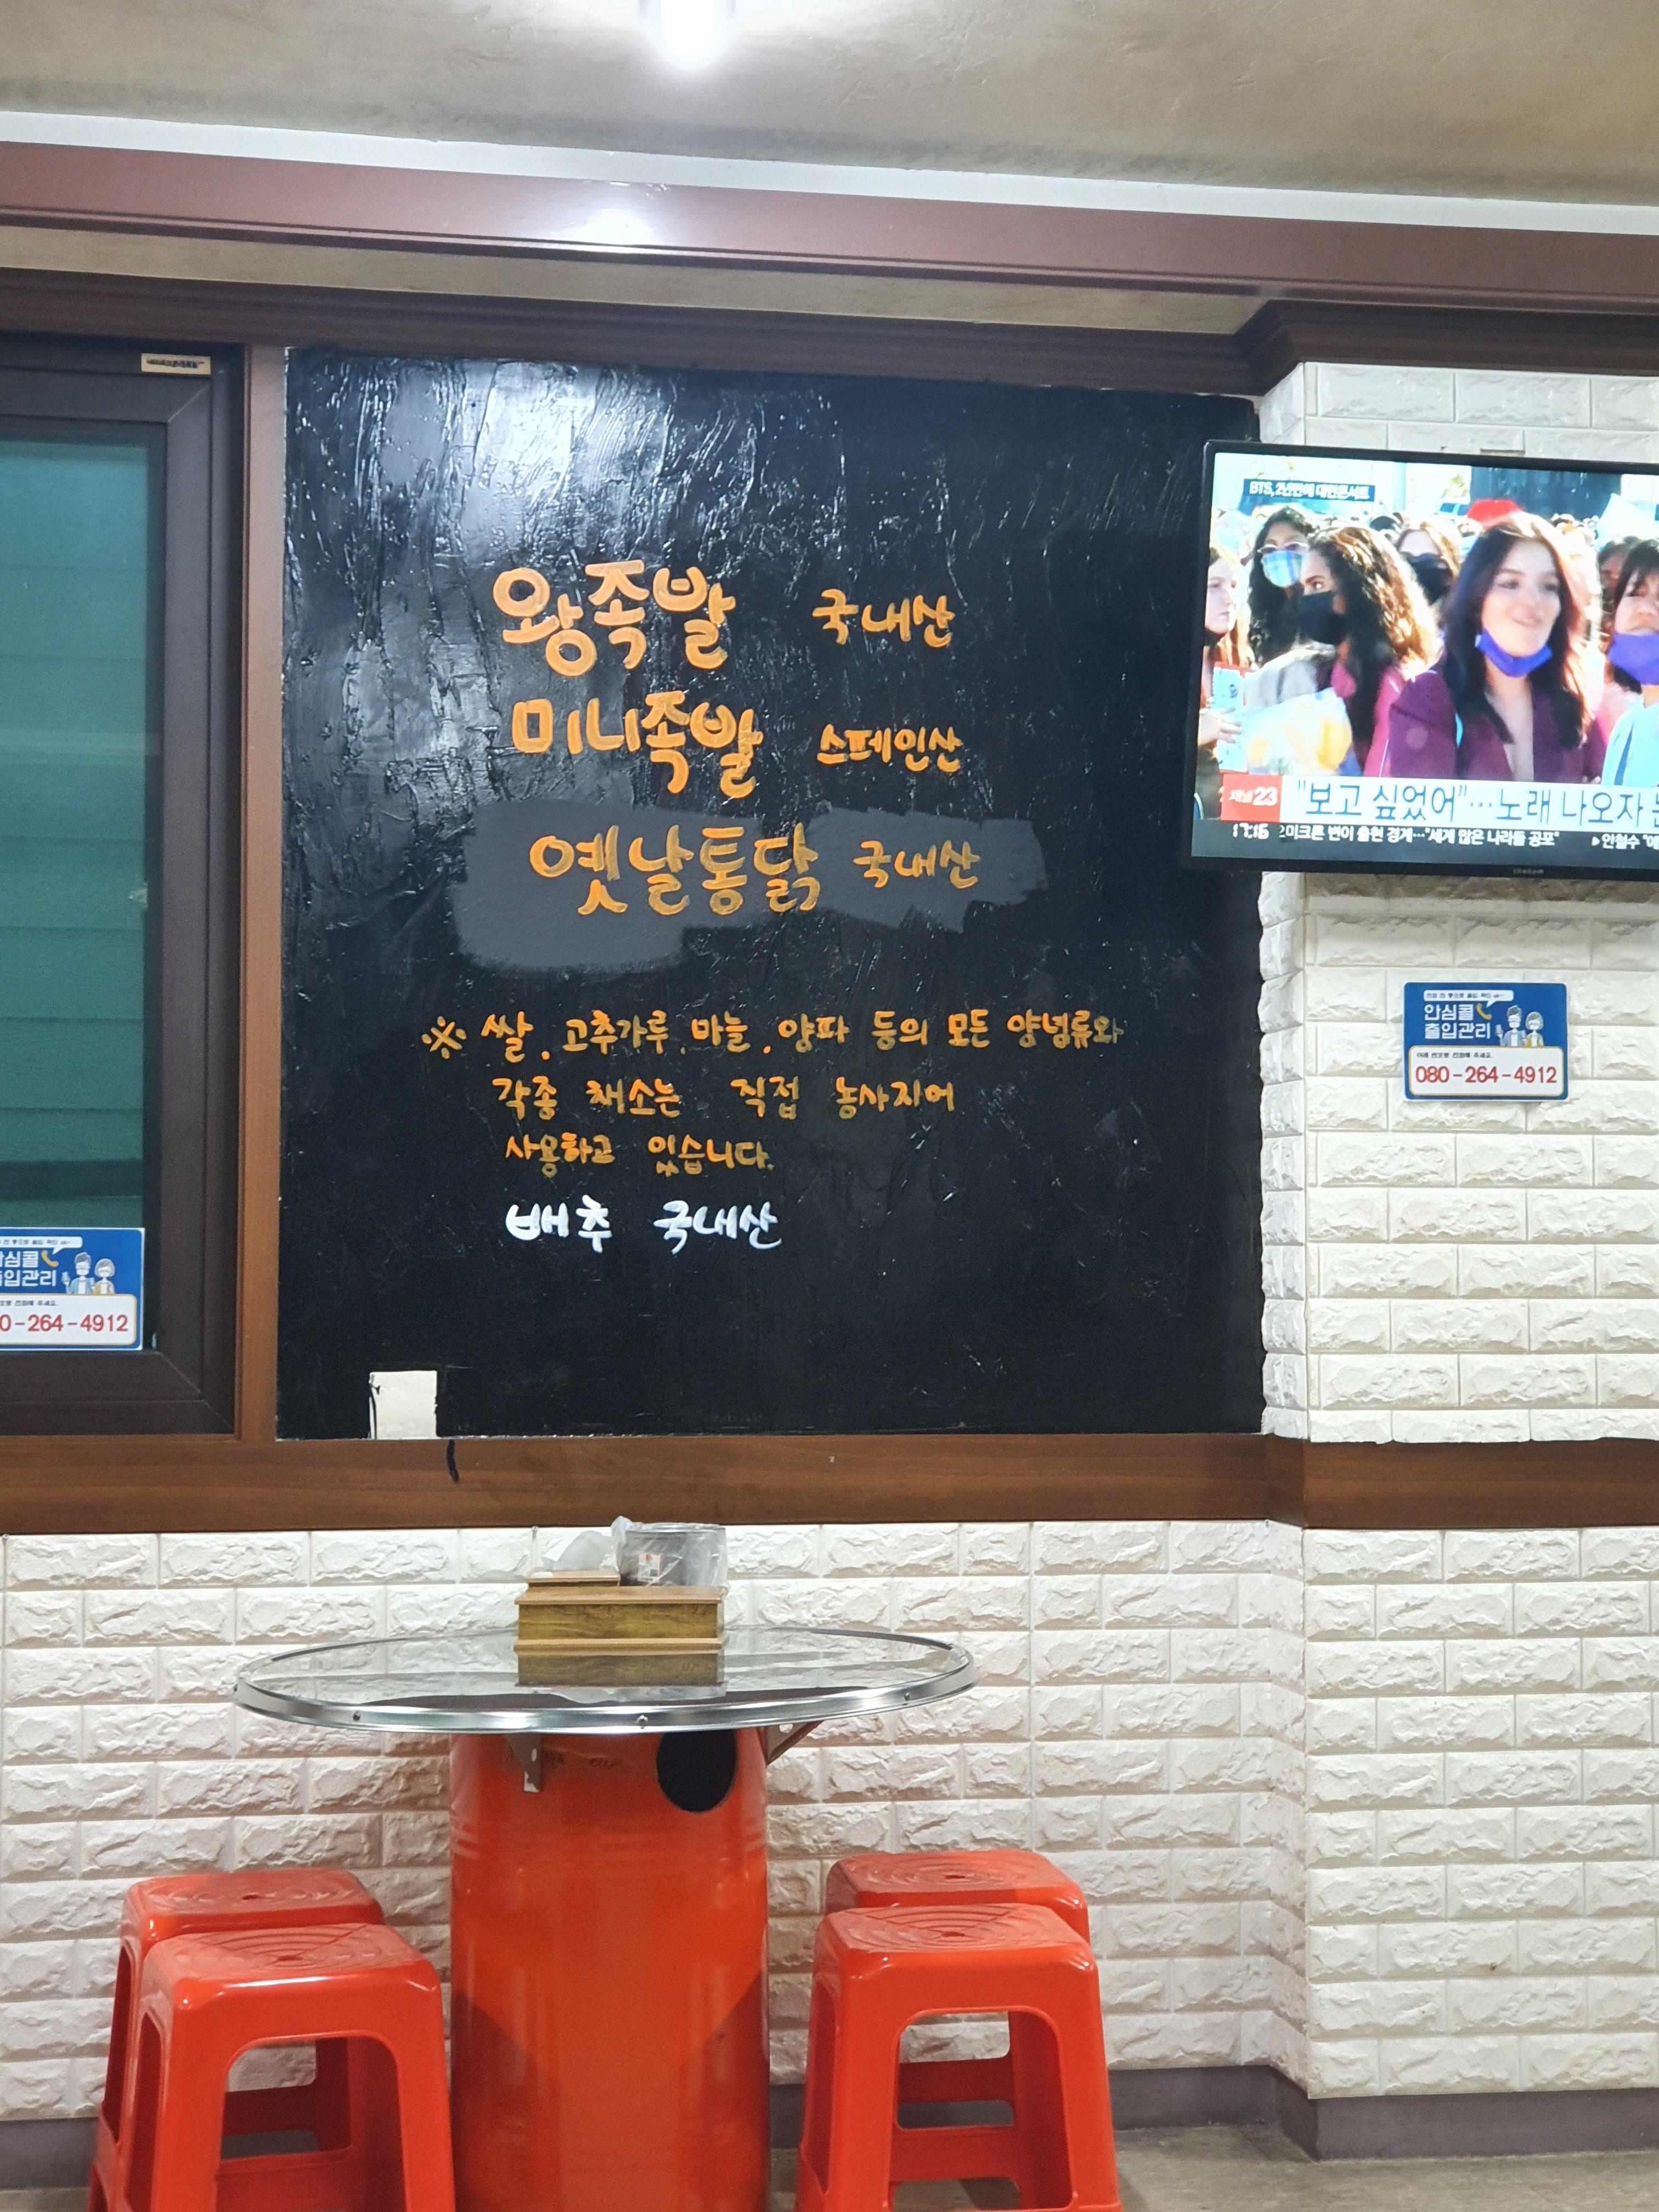 왕족발 국내산
미니족발 스페인산
옛날통닭 국내산
※ 쌀, 고추가루, 마늘, 양파 등의 모든 양념류와
각종 채소는 직접 농사지어
사용하고 있습니다.
배추 국내산
BTS, 2년만에 대면콘서트
채널23 "보고 싶었어"…노래 나오자
17:16 오미크론 변이 출현 경계…"세계 많은 나라들 공포" ▶안철수
안심콜
출입관리
아래 번호로 전화해 주세요.
080-264-4912
안심콜
출입관리
전화해 주세요.
0-264-4912